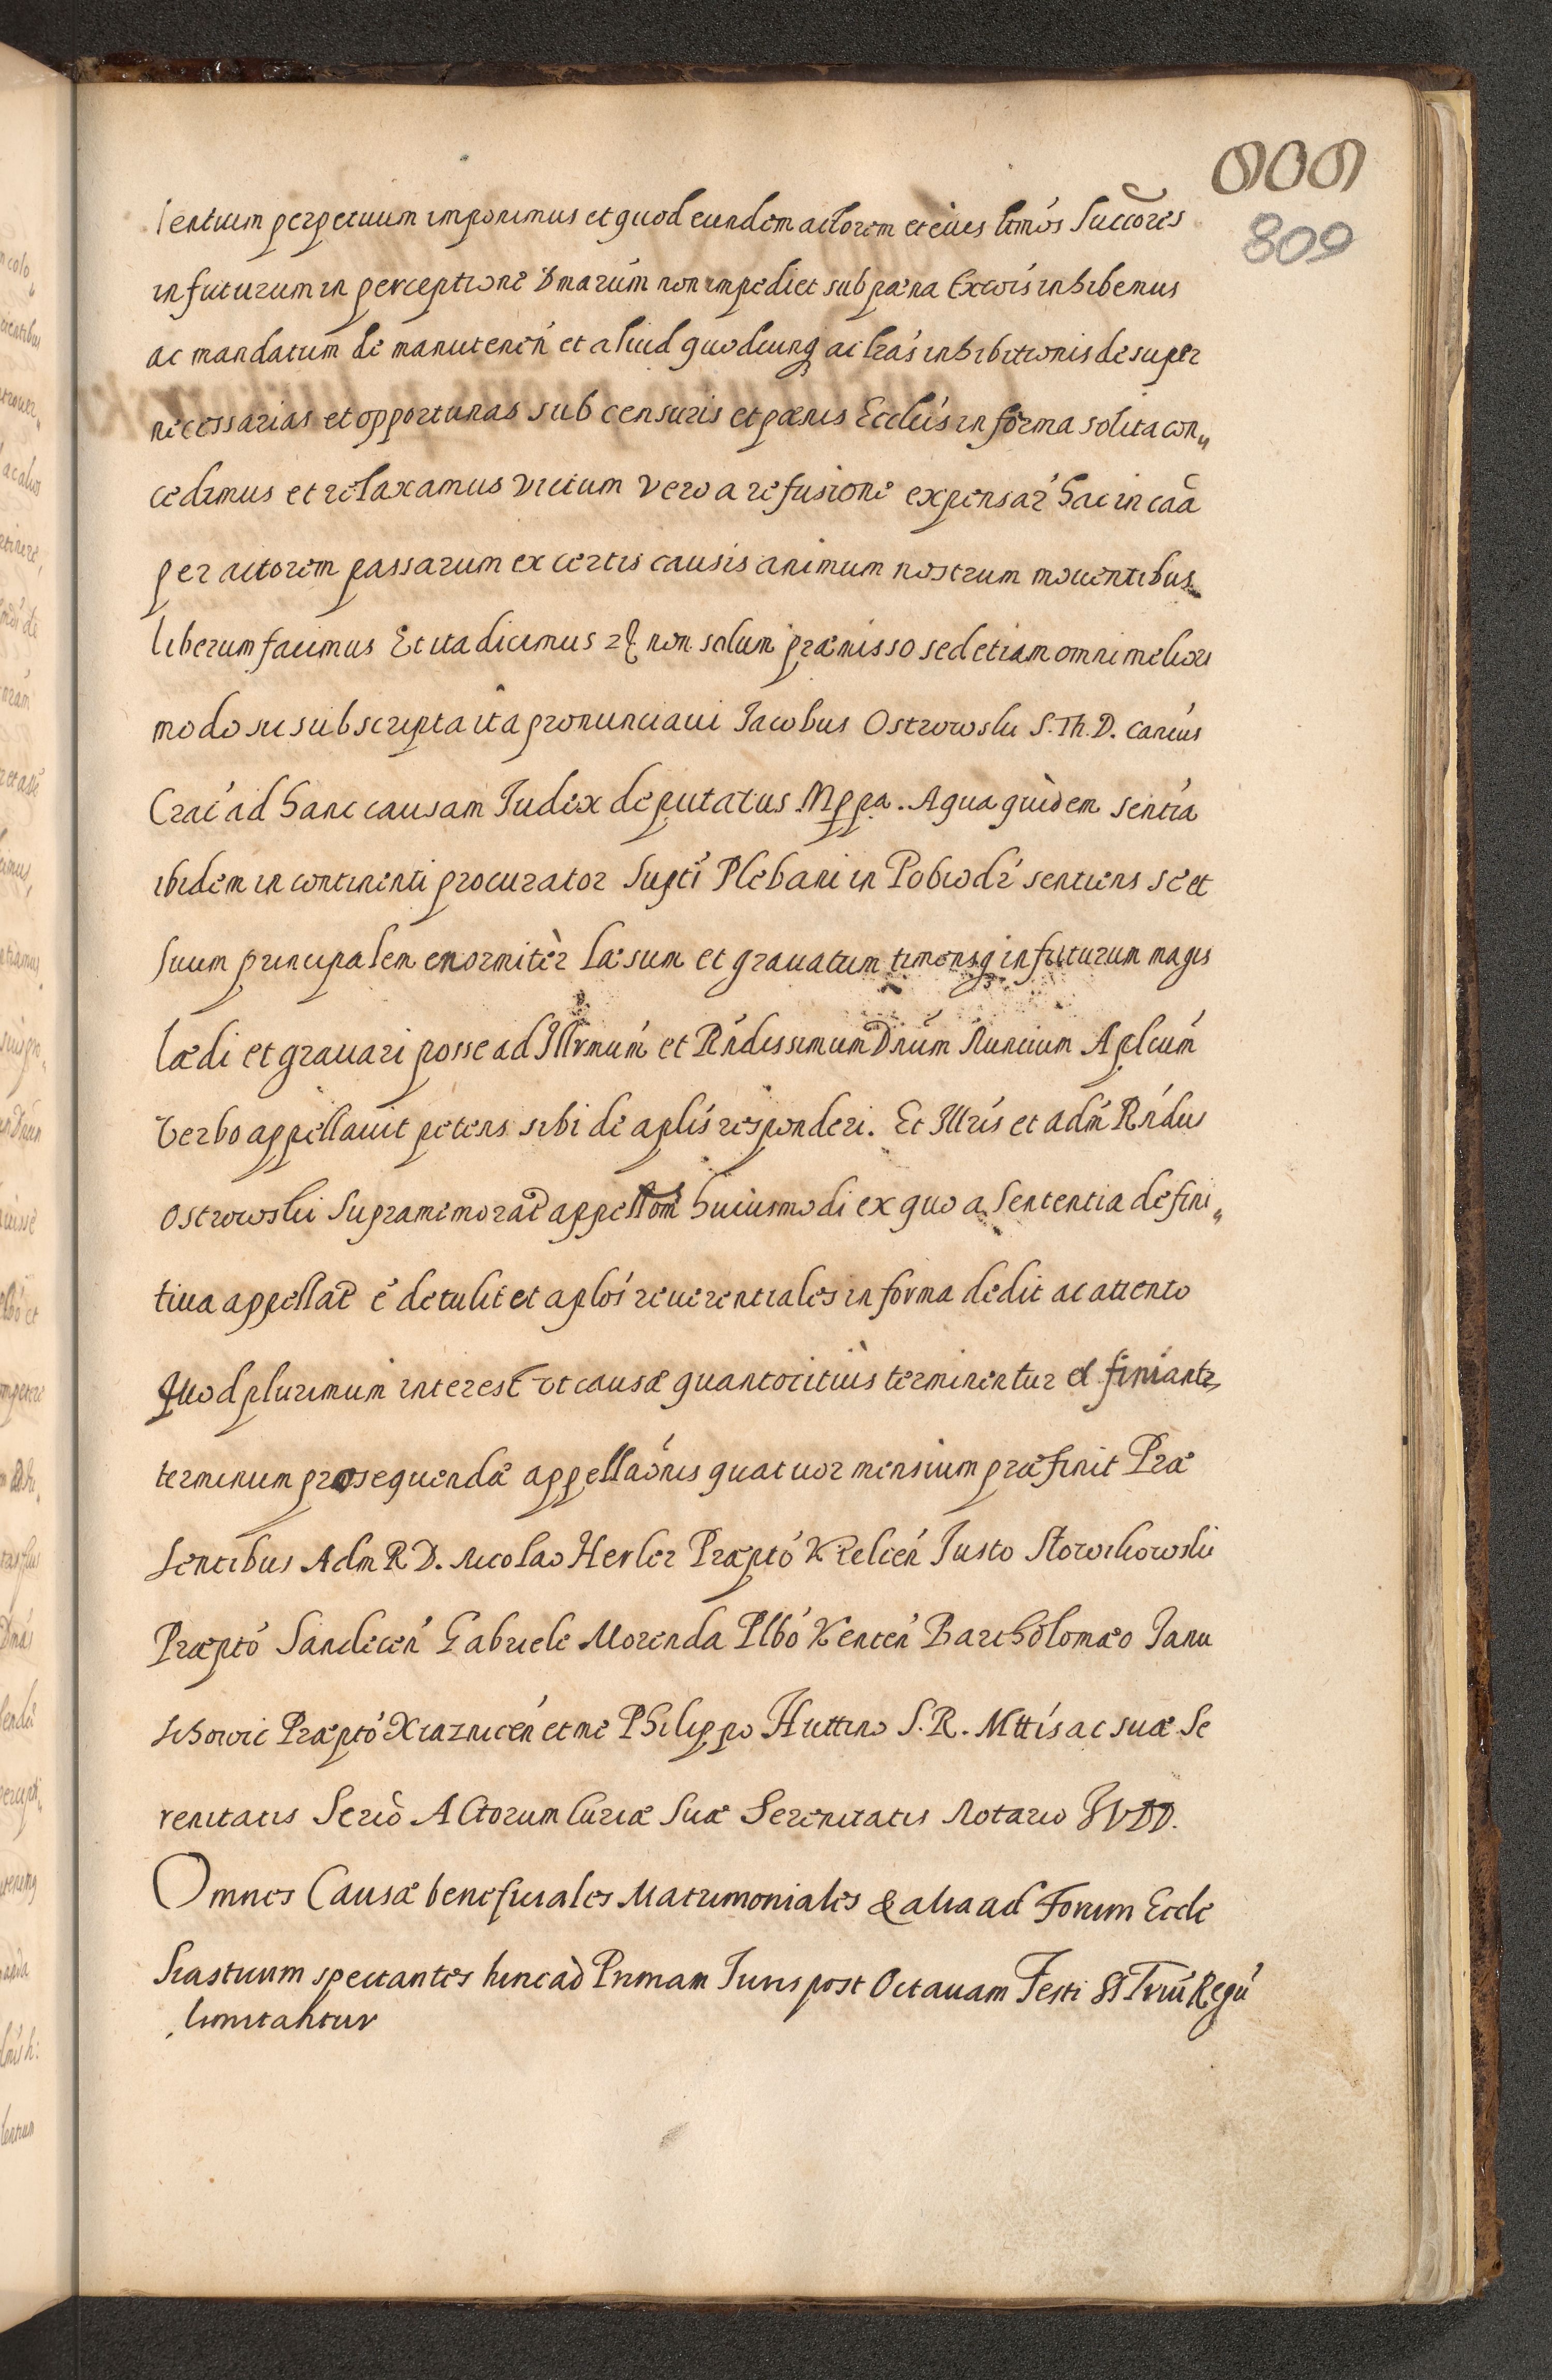 909
809
lentium perpetuum imponimus et quod eundem actorem et eius ltmós Succōres
in futurum in perceptione Dmarúm non impediet sub pæna Excois inhibemus
ac mandatum de manutenen̄ et aliud quodcunq ac lrás inhibitionis desuper
necessarias et opportunas sub censuris et pænis Ecclicis in forma solita con„
cedimus et relaxamus victum vero a refusione expensar̄ hac in caā
per actorem passarum ex certis causis animum nostrum mouentibus
liberum facimus Et ita dicimus non solum præmisso sed etiam omni meliori
modo sic subscripta ita pronunciaui Jacobus Ostrowski S. Th. D. Canćus
Crać ad hanc causam Judex deputatus Mppa. A qua quidem sentīa
ibidem in continenti procurator Supti Plebani in Pobiedr̄ sentiens se et
suum principalem enormitèr læsum et grauatum timensq in futurum magis
lædi et grauari posse ad Illrmum et Rndissimum Dnúm Nuncium Aplcum
verbo appellauit petens sibi de aplis responderi. Et Illris et adm Rndus
Ostrowski Supramemorat appellom huiusmodi ex quo a Sententia defini„
tiua appellat é detulit et aplos reuerentiales in forma dedit ac attento
quod plurimum interest vt causæ quantocitiùs terminentur et finiantr
terminum prosequendæ appellaōnis quatuor mensium præfinit Præ
sentibus Adm R D. Nicolao Herler Præptó Kielcen̄ Justo Słowikowski
Præptó Sandecen̄ Gabriele Morenda Plbó Kencen̄ Bartholomæo Janu
schowic Præptó Xiaznicen̄ et me Philippo Huttino S. R. Mttis ac suæ Se
renitatis Secrio Actorum Curiæ Suæ Serenitatis Notario JVDD.
Omnes Causæ beneficiales Matrimoniales & alia ad Forum Eccle
siasticum spectantes hinc ad Primam Juris post Octauam Festi SS Triú Regú
limitantur